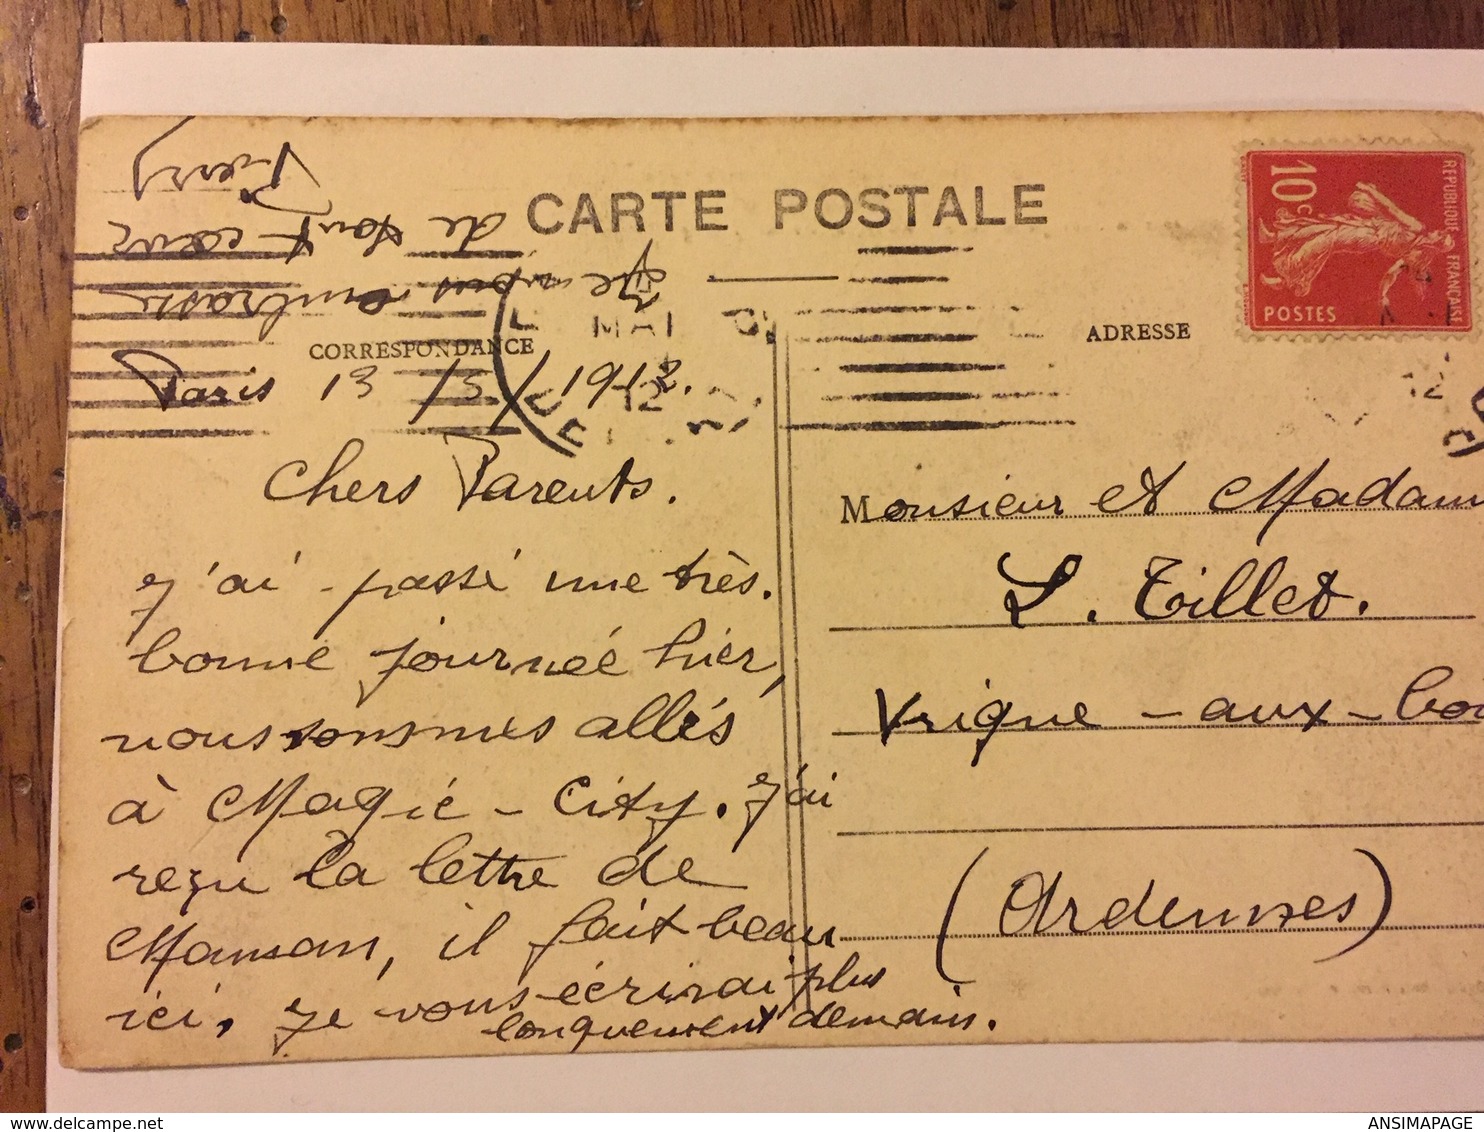 CARTE POSTALE
CORRESPONDANCE
ADRESSE
RÉPUBLIQUE FRANÇAISE
10c
POSTES
MAI
12
Paris 13/5/1912.
Chers Parents.
J'ai passé une très.
bonne journée hier,
nous sommes allés
à Magic-City. J'ai
reçu la lettre de
Maman, il fait beau
ici, je vous écrirai plus
longuement demain.
Je vous embrasse
de tout cœur
Monsieur et Madam
L. Tillet.
Vrigne-aux-bo
(Ardennes)
ANSIMAPAGE